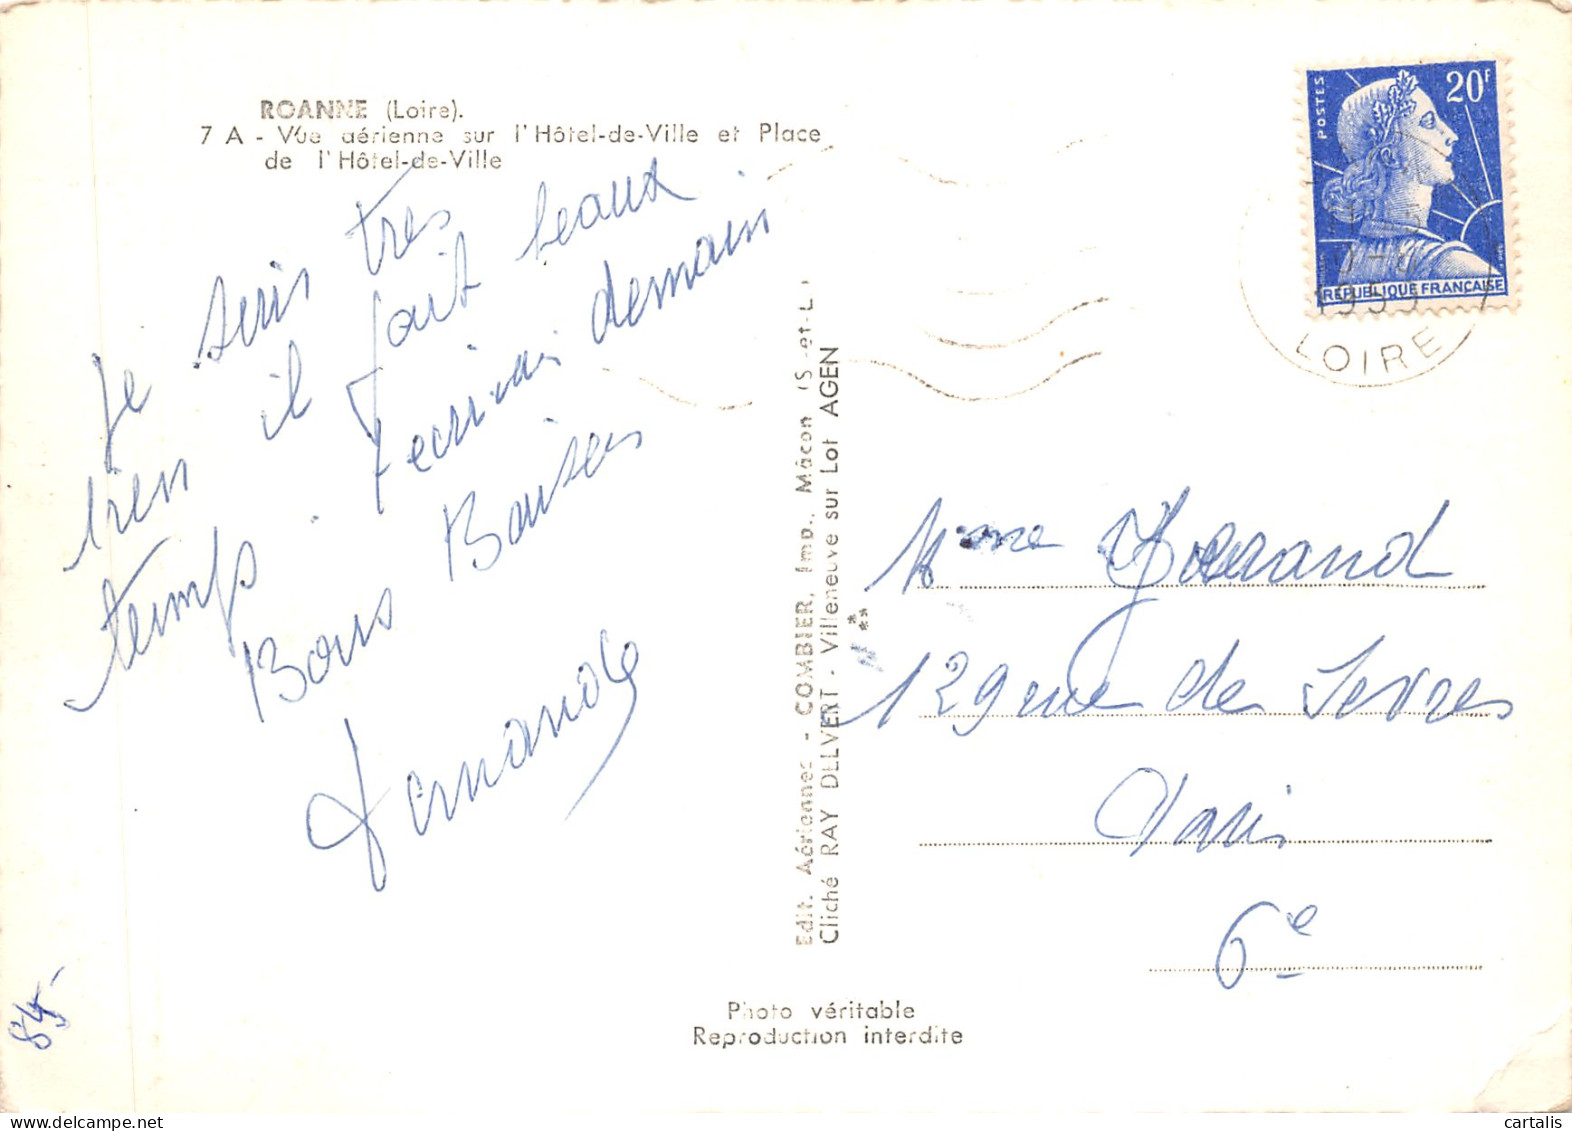 ROANNE (Loire).
7 A - Vue aérienne sur l'Hôtel-de-Ville et Place
de l'Hôtel-de-Ville
Je suis très
bien il fait beaux
temps. T'ecrirai demain
Bons Baisers
Fernande
Edit. Aériennes - COMBIER, Imp., Mâcon (S.-et-L.)
Cliché RAY DELVERT - Villeneuve sur Lot AGEN
Photo véritable
Reproduction interdite
84-
POSTES
20F
REPUBLIQUE FRANÇAISE
1955
LOIRE
Mme
129 rue de Sevres
Paris
6e
cartalis